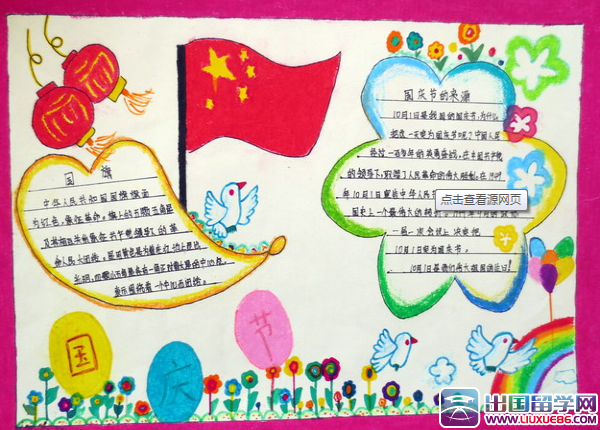 国庆节的来源
10月1日是我国的国庆节,为什么
把这一天定为国庆节呢?中国人民
经过一百多年的英勇奋战,在中国共产党
的领导下,取得了人民革命的伟大胜利。在1949
年10月1日宣告中华人民
点击查看源网页
国史上一个最伟大的转
一届一次会议上决定把
10月1日定为国庆节。
10月1日是我们伟大祖国的生日!
国 旗
中华人民共和国国旗旗面
为红色,象征革命。旗上的五颗五角星
及其相互关系象征共产党领导下的革
命人民大团结。星用黄色是为着在红地上显出
光明,四颗小五角星各有一尖正对着大星的中心点,
表示围绕着一个中心而团结。
国
庆
节
出国留学网
WWW.LIUXUE86.COM